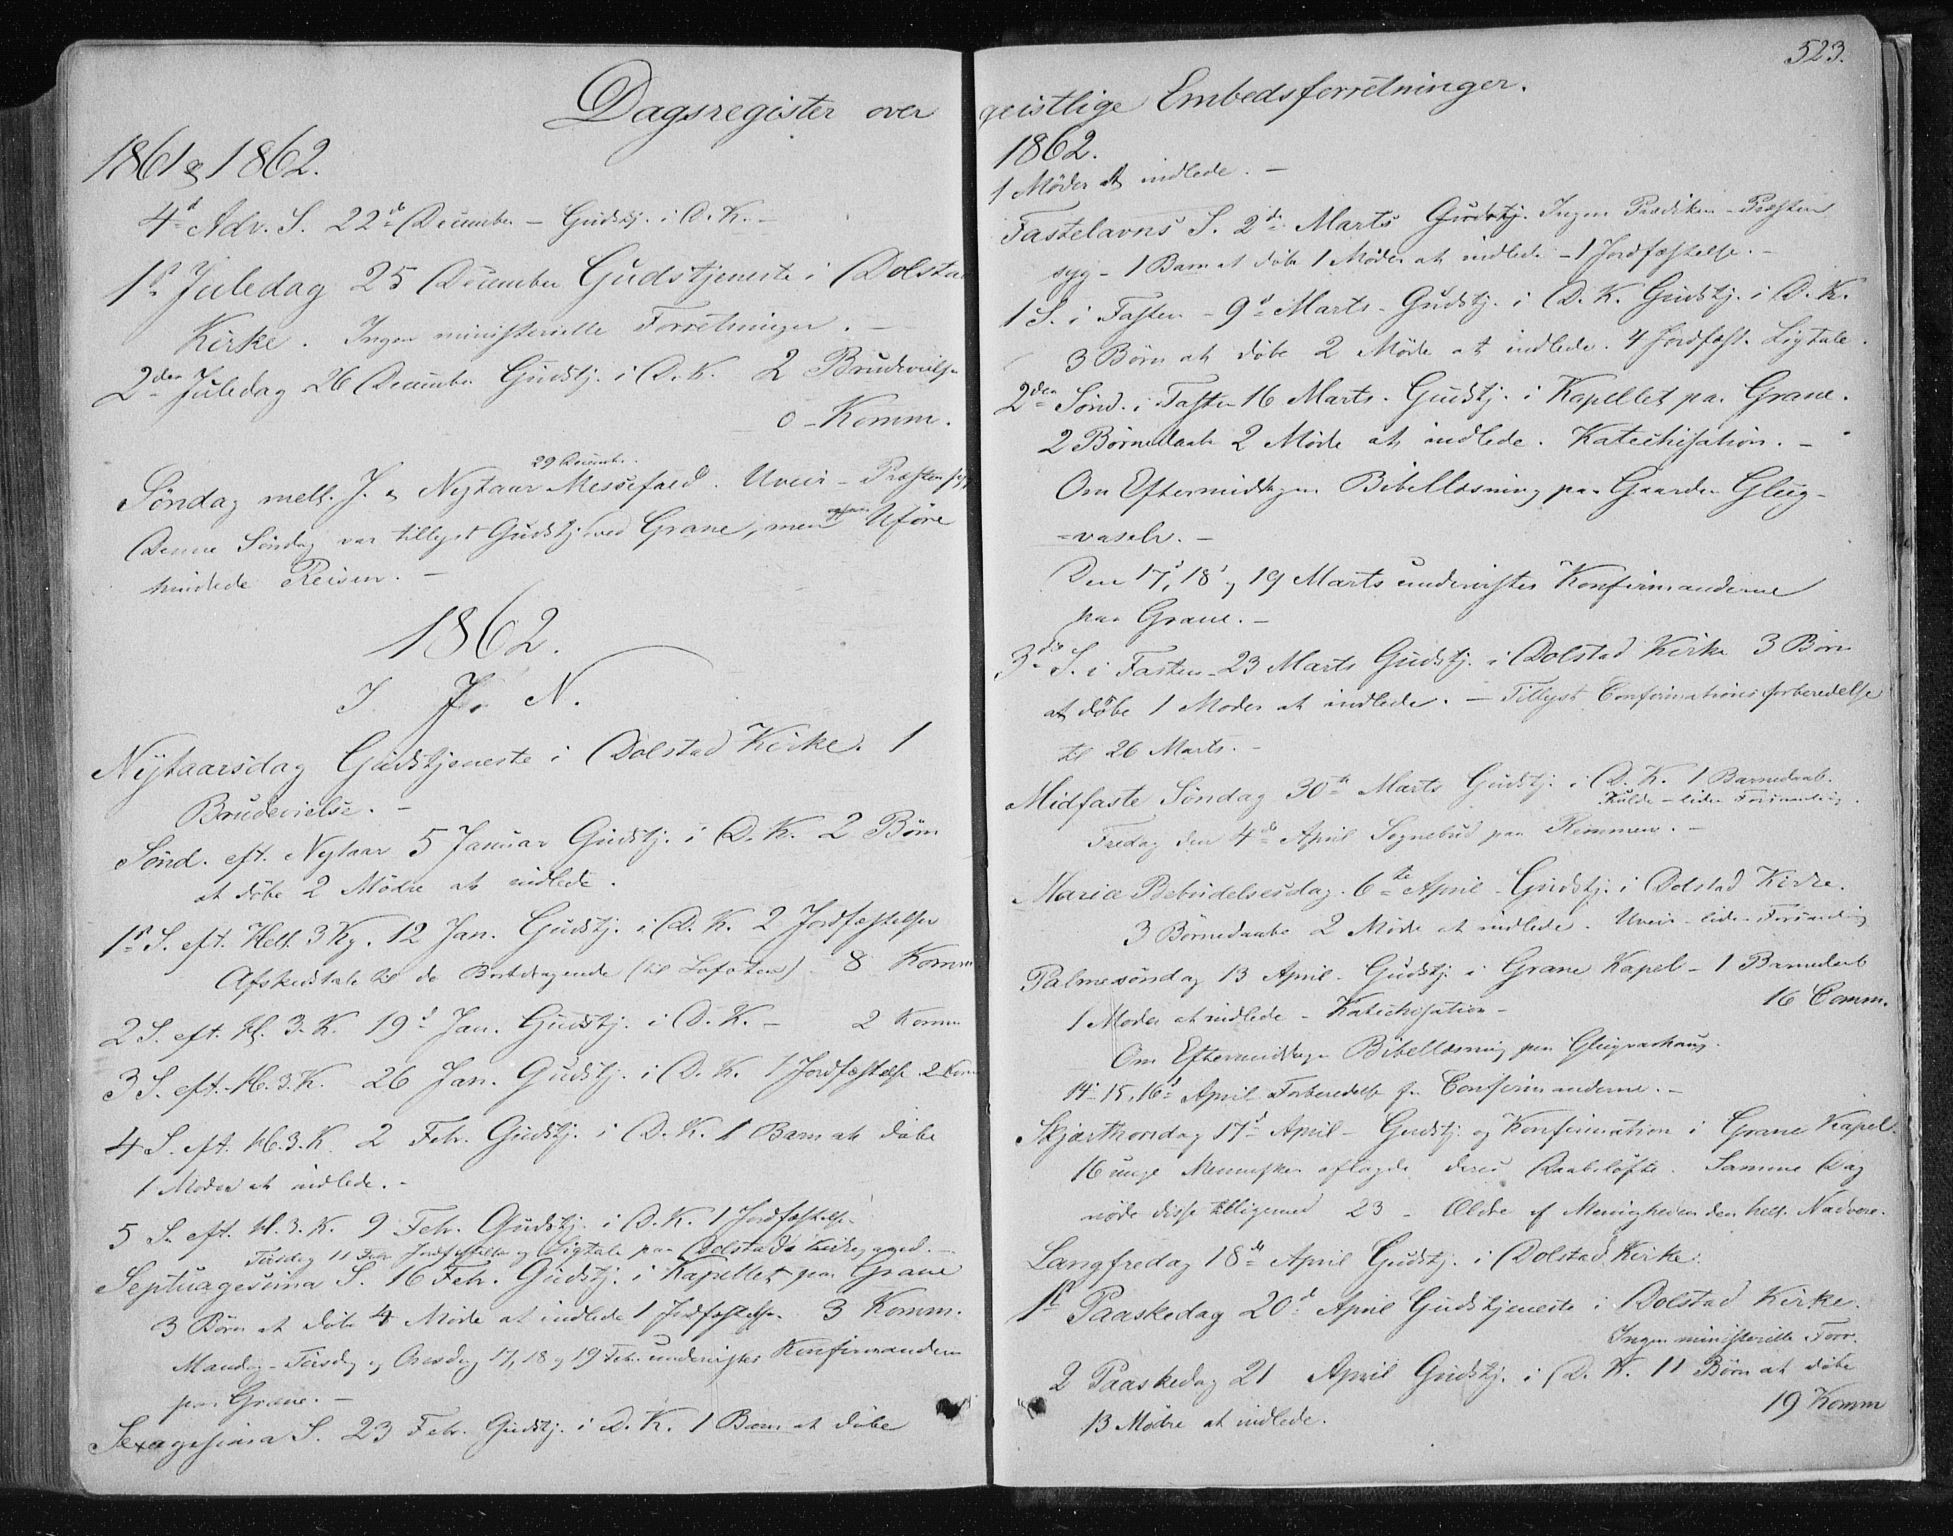 Dagsregister over geistlige Embedsforretninger.
523.
1861 & 1862.
4d Adv. S. 22d December – Gudstj. i D. K. –
1st Juledag 25 December Gudstjeneste i Dolstad
Kirke. Ingen ministerielle Forretninger. –
2den Juledag 26 December Gudstj. i D. K. 2 Brudevielse
0 – Komm.
29 Decembr.
Søndag mell. J. & Nytaar Messefald. Uveir – Præsten syg
Denne Søndag var tillyst Gudstj. ved Grane, men Uføre
hindrede Reisen. –
1862.
I. J. N.
Nytaarsdag Gudstjeneste i Dolstad Kirke. 1
Brudevielse. –
Sønd. eft. Nytaar 5 Januar Gudstj. i D. K. 2 Børn
at døbe 2 Mødre at indlede.
1st S. eft. Hell. 3 Kg. 12 Jan. Gudstj. i D. K. 2 Jordfæstelser
Afskedstale til de Bortdragende (til Lofoten). 8 Komm
2 S. eft. H. 3. K. 19d Jan. Gudstj. i D. K. – 2 Komm
3 S. eft. H. 3. K. 26 Jan. Gudstj. i D. K. 1 Jordfæstelse 2 Kom
4 S. eft. H. 3. K. 2 Feb. Gudstj. i D. K. 1 Barn at døbe
1 Moder at indlede. –
5 S. eft. H. 3. K. 9 Febr. Gudstj. i D. K. 1 Jordfæstelse
Tirsdag 11 Febr. Jordfæstelse og Ligtale paa Dolstads Kirkegaard. –
Septuagesima S. 16 Febr. Gudstj. i Kapellet paa Grane
3 Børn at døbe 4 Mødre at indlede 1 Jordfæstelse. 3 Komm.
Mandag – Tirsdag og Onsdag 17, 18 og 19 Feb. undervistes Konfirmanderne
paa Grane. –
Sexagesima S. 23 Febr. Gudstj. i D. K. 1 Barn at døbe
1862.
1 Moder at indlede. –
Fastelavns S. 2d Marts Gudstj. Ingen Prædiken – Præsten
syg – 1 Barn at døbe 1 Moder at indlede – 1 Jordfæstelse. –
1 S. i Fasten – 9d Marts – Gudstj. i D. K. Gudstj. i D. K.
3 Børn at døbe 2 Mødre at indlede. 4 Jordfæst. Ligtale.
2den Sønd. i Fasten 16 Marts. Gudstj. i Kapellet paa Grane.
2 Børnedaab 2 Mødre at indlede. Katechisation. –
Om Eftermiddagen Bibellæsning paa Gaarden Glug-
=vaselv. –
Den 17, 18 og 19 Marts undervistes Konfirmanderne
paa Grane. –
3die S. i Fasten – 23 Marts Gudstj. i Dolstad Kirke 3 Børn
at døbe 1 Moder at indlede. – Tillyst Confirmationsforberedelse
til 26 Marts. –
Midfaste Søndag 30te Marts Gudstj. i D. K. 1 Barnedaab.
Kulde – liden Forsamling.
Fredag den 4de April Sognebud paa Remmen. –
Maria Bebudelsesdag. 6te April – Gudstj. i Dolstad Kirke.
3 Børnedaabe 2 Mødre at indlede. Uveir – liden Forsamling
Palmesøndag 13 April – Gudstj. i Grane Kapel – 1 Barnedaab
16 Comm.
1 Moder at indlede – Katechisation –
Om Eftermiddagen Bibellæsning paa
14. 15. 16d April Forberedelse for Confirmanderne. –
Skjærthorsdag 17d April – Gudstj. og Konfirmation i Grane Kapel.
16 unge Mennesker aflagde deres Daabsløfte. Samme Dag
nøde disse tilligemed 23 – Ældre af Menigheden den hell. Nadvere.
Langfredag 18de April Gudstj. i Dolstad Kirke.
1st Paaskedag 20d April Gudstjeneste i Dolstad Kirke.
Ingen ministerielle Forr.
2 Paaskedag 21 April Gudstj. i D. K. 11 Børn at døbe
19 Komm
13 Mødre at indlede.